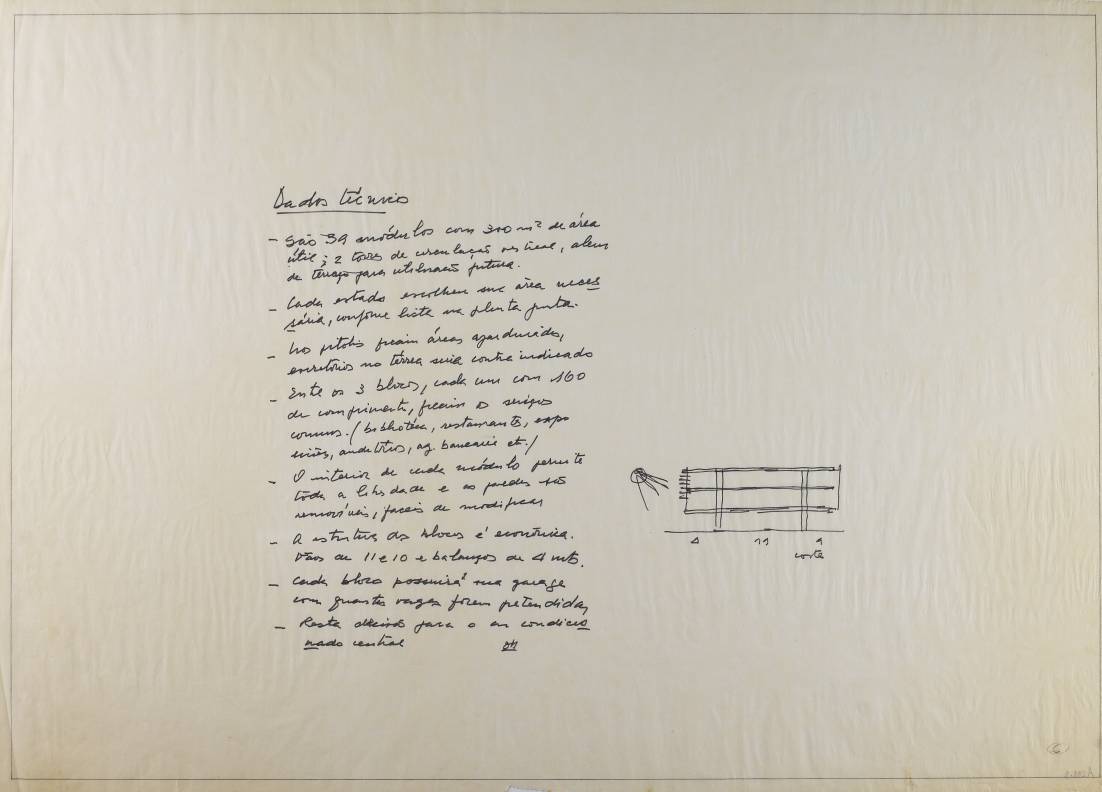 Dados técnicos
- São 39 módulos com 300 m² de área
útil; 2 torres de circulação vertical, alem
de terraço para utilização futura.
- Cada estado escolheu sua área neces
sária, conforme lista na planta junta.
- Nos pilotis ficam áreas ajardinadas,
escritórios no térreo seria contra indicado
- Entre os 3 blocos, cada um com 160
de comprimento, ficam os serviços
comuns. / biblioteca, restaurante, expo
sições, auditórios, ag. bancaria et. /
- O interior de cada módulo permite
toda a liberdade e as paredes são
removíveis, faceis de modificar
- A estrutura dos blocos é econômica.
Vãos de 11 e 10 e balanços de 4 mts.
- Cada bloco possuirá sua garage
com quantas vagas forem pretendidas
- Resta para o ar condicio
nado central
ON
4 11 4
corte
6